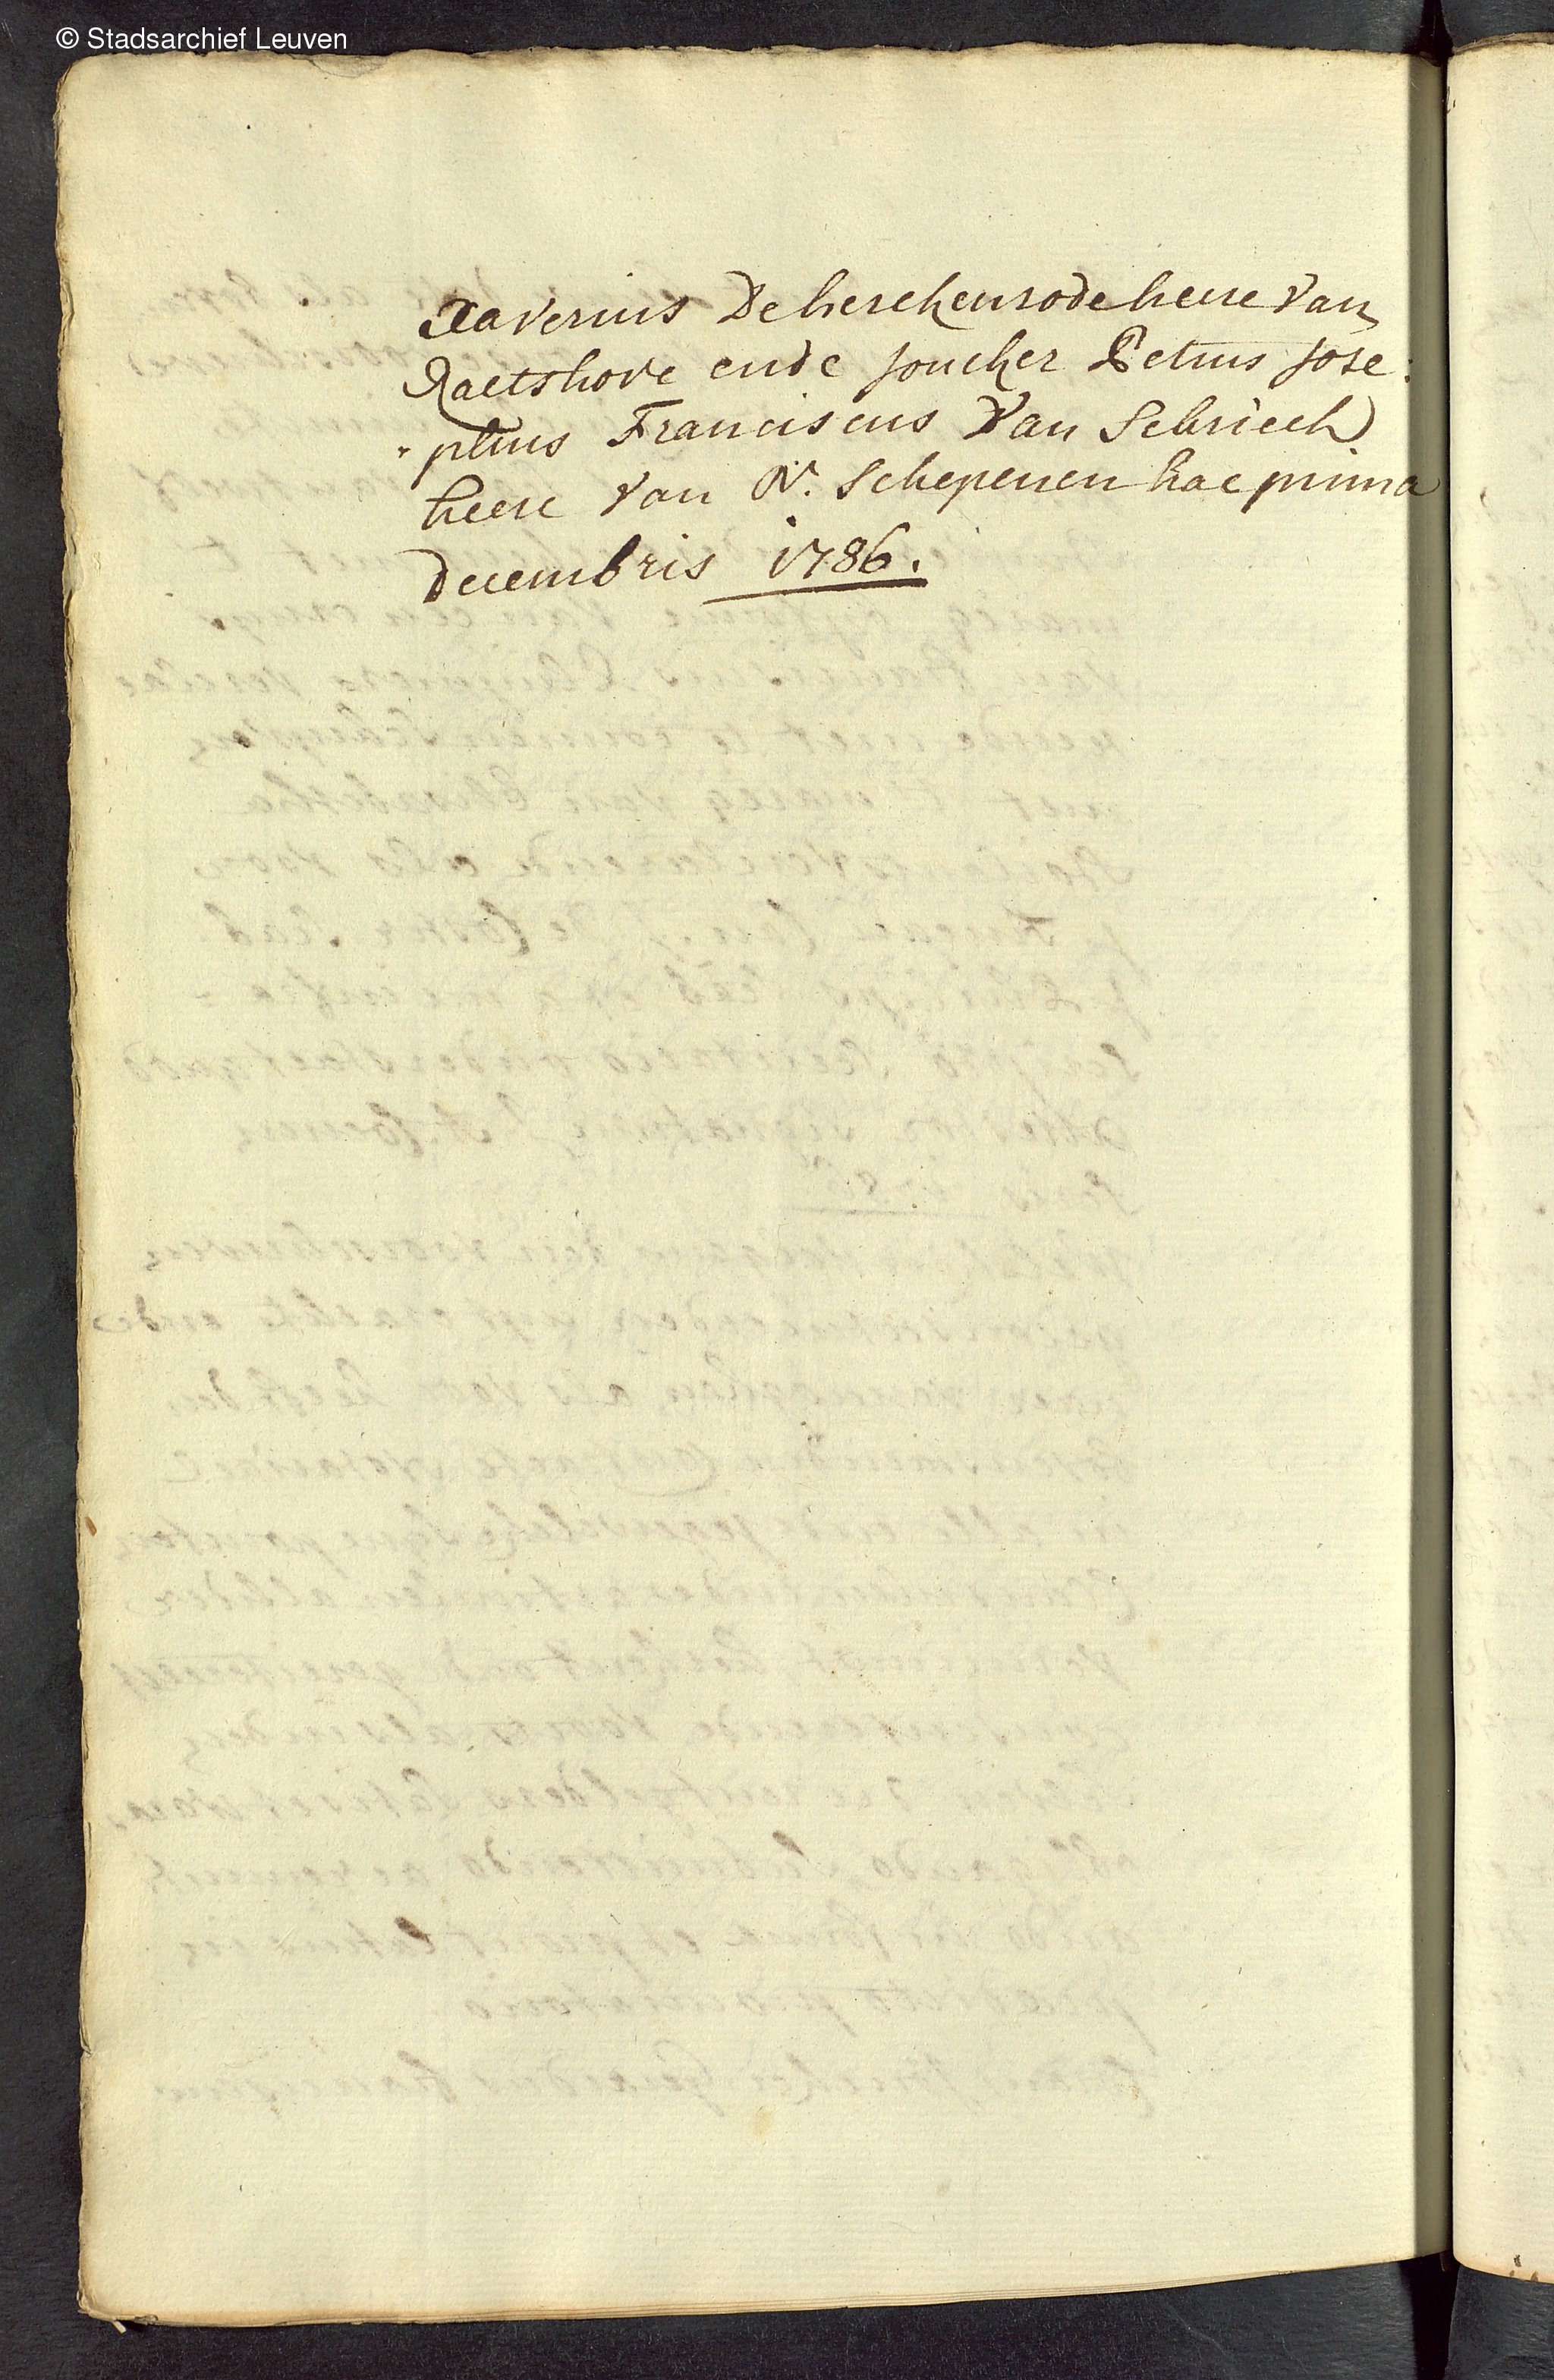 © Stadsarchief Leuven
Xaverius De herckenrode heere van
Raetshove ende joncker Petrus Jose:
"phus Franciscus Van Schrieck
heere van N. Schepenen hac prima
decembris 1786.